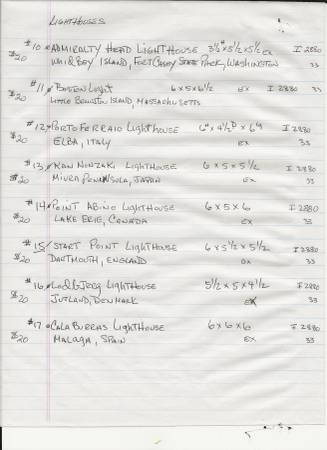 LIGHTHOUSES
#10 ADMIRALTY HEAD LIGHTHOUSE 3½" x 5½ x 5½ I 2880
$20 WHIDBEY ISLAND, FORT CASEY STATE PARK, WASHINGTON 33
#11 BOSTON LIGHT 6 x 5 x 6½ EX I 2880 33
$20 LITTLE BREWSTER ISLAND, MASSACHUSETTS
#12 PORTO FERRAIO LIGHTHOUSE 6" x 4½ x 6 I 2880
$20 ELBA, ITALY EX 33
#13 KAN NONZAKI LIGHTHOUSE 6 x 5 x 5½ I 2880
$20 MIURA PENINSULA, JAPAN EX 33
#14 POINT ABINO LIGHTHOUSE 6 x 5 x 6 I 2880
$20 LAKE ERIE, CANADA EX 33
#15 START POINT LIGHTHOUSE 6 x 5½ x 5½ I 2880
$20 DARTMOUTH, ENGLAND 33
#16 LODBJERG LIGHTHOUSE 5½ x 5 x 4½ I 2880
$20 JUTLAND, DENMARK EX 33
#17 CALABURRAS LIGHTHOUSE 6 x 6 x 6 I 2880
$20 MALAGA, SPAIN EX 33